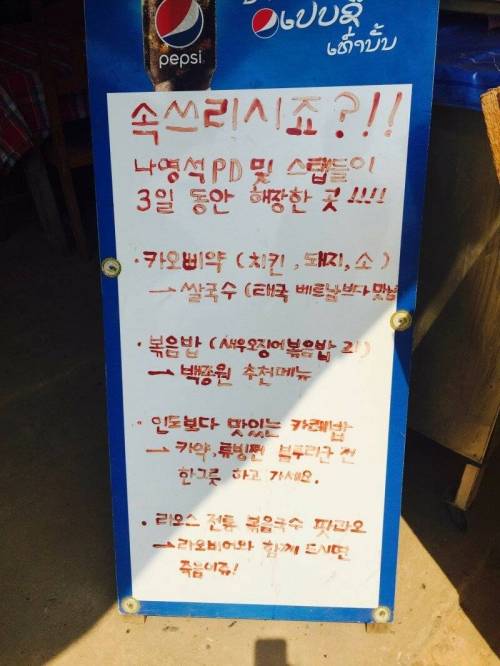 pepsi
ເປບຊີ
ເທົ່ານັ້ນ
속쓰리시죠?!!
나영석PD 및 스탭들이
3일 동안 해장한 곳 !!!!
· 카오삐약 (치킨, 돼지, 소)
→ 쌀국수 (태국 베트남보다 맛남
· 볶음밥 (새우오징어볶음밥 괴)
→ 백종원 추천메뉴
· 인도보다 맛있는 카레밥
→ 카약, 튜빙쩐 블루라군 전
한그릇 하고 가세요.
· 라오스 전통 볶음국수 팟라오
→ 라오비어와 함께 드시면
죽음이쥬!